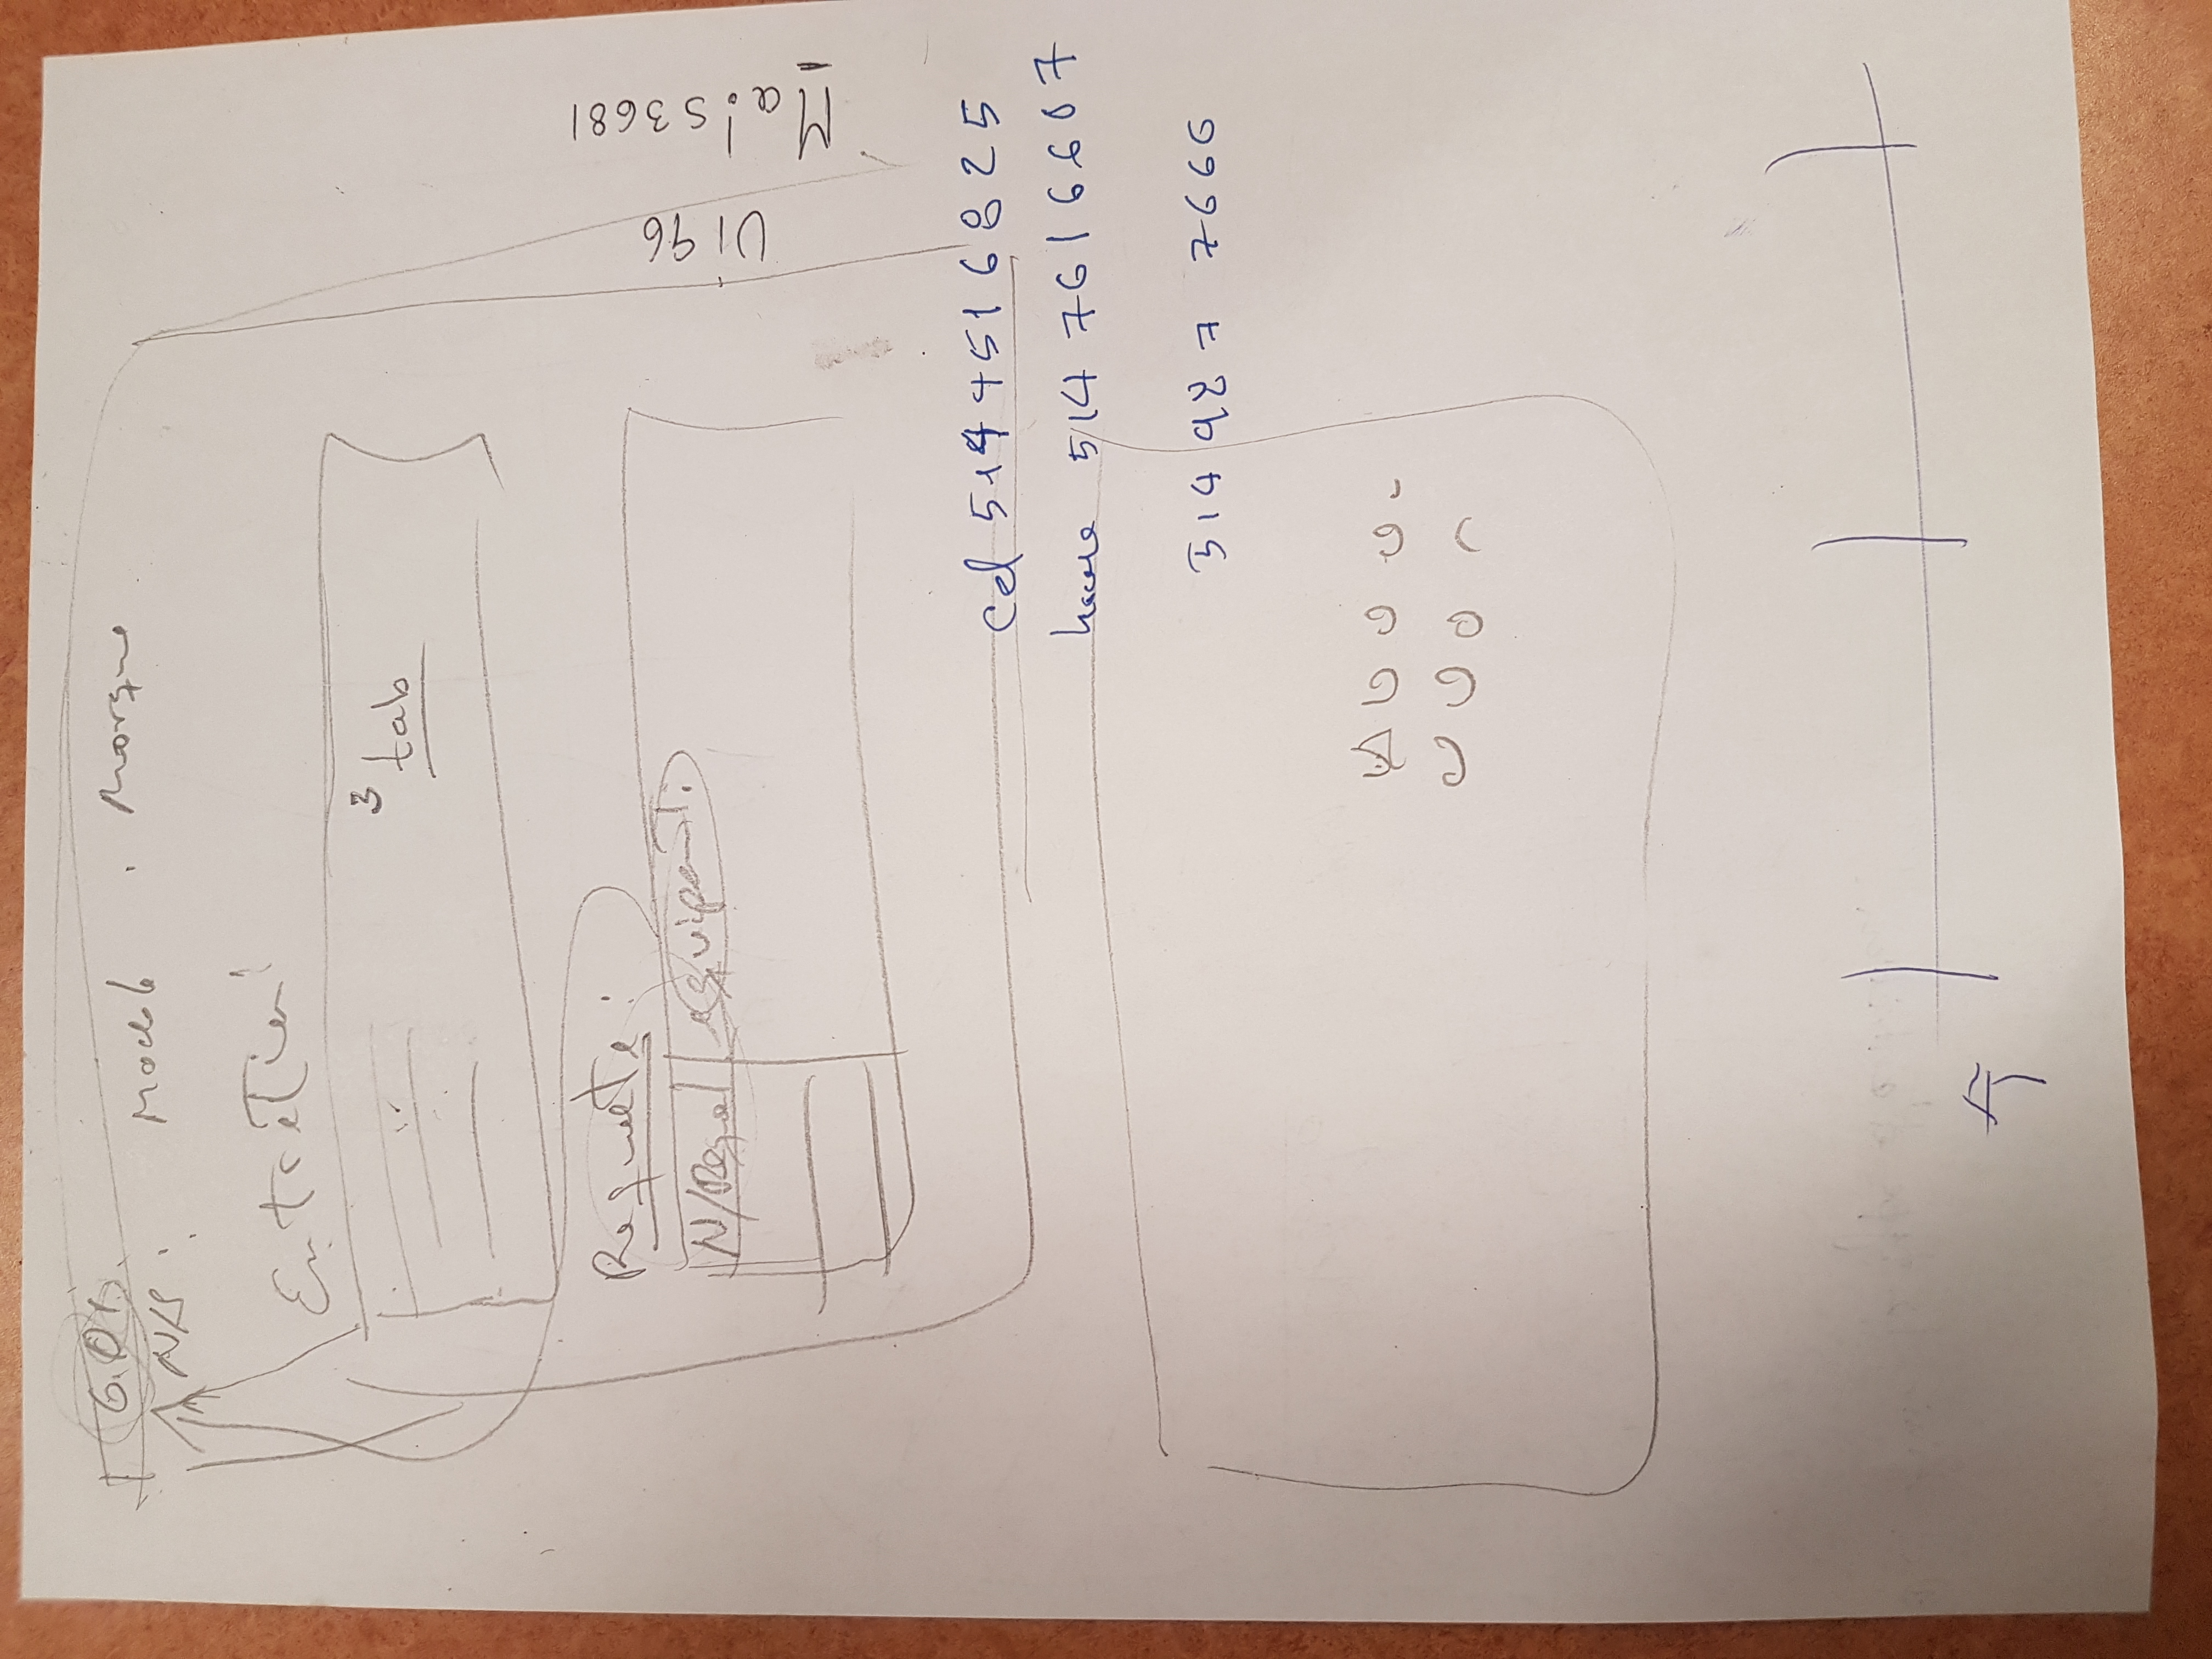 G.01.
N/S : Modele . Marque
Entretien
3 tab
Requete :
N/Requet equipemt.
U196
Ma!s3681
Cel 514 7516825
house 514 7616607
514 987 7666